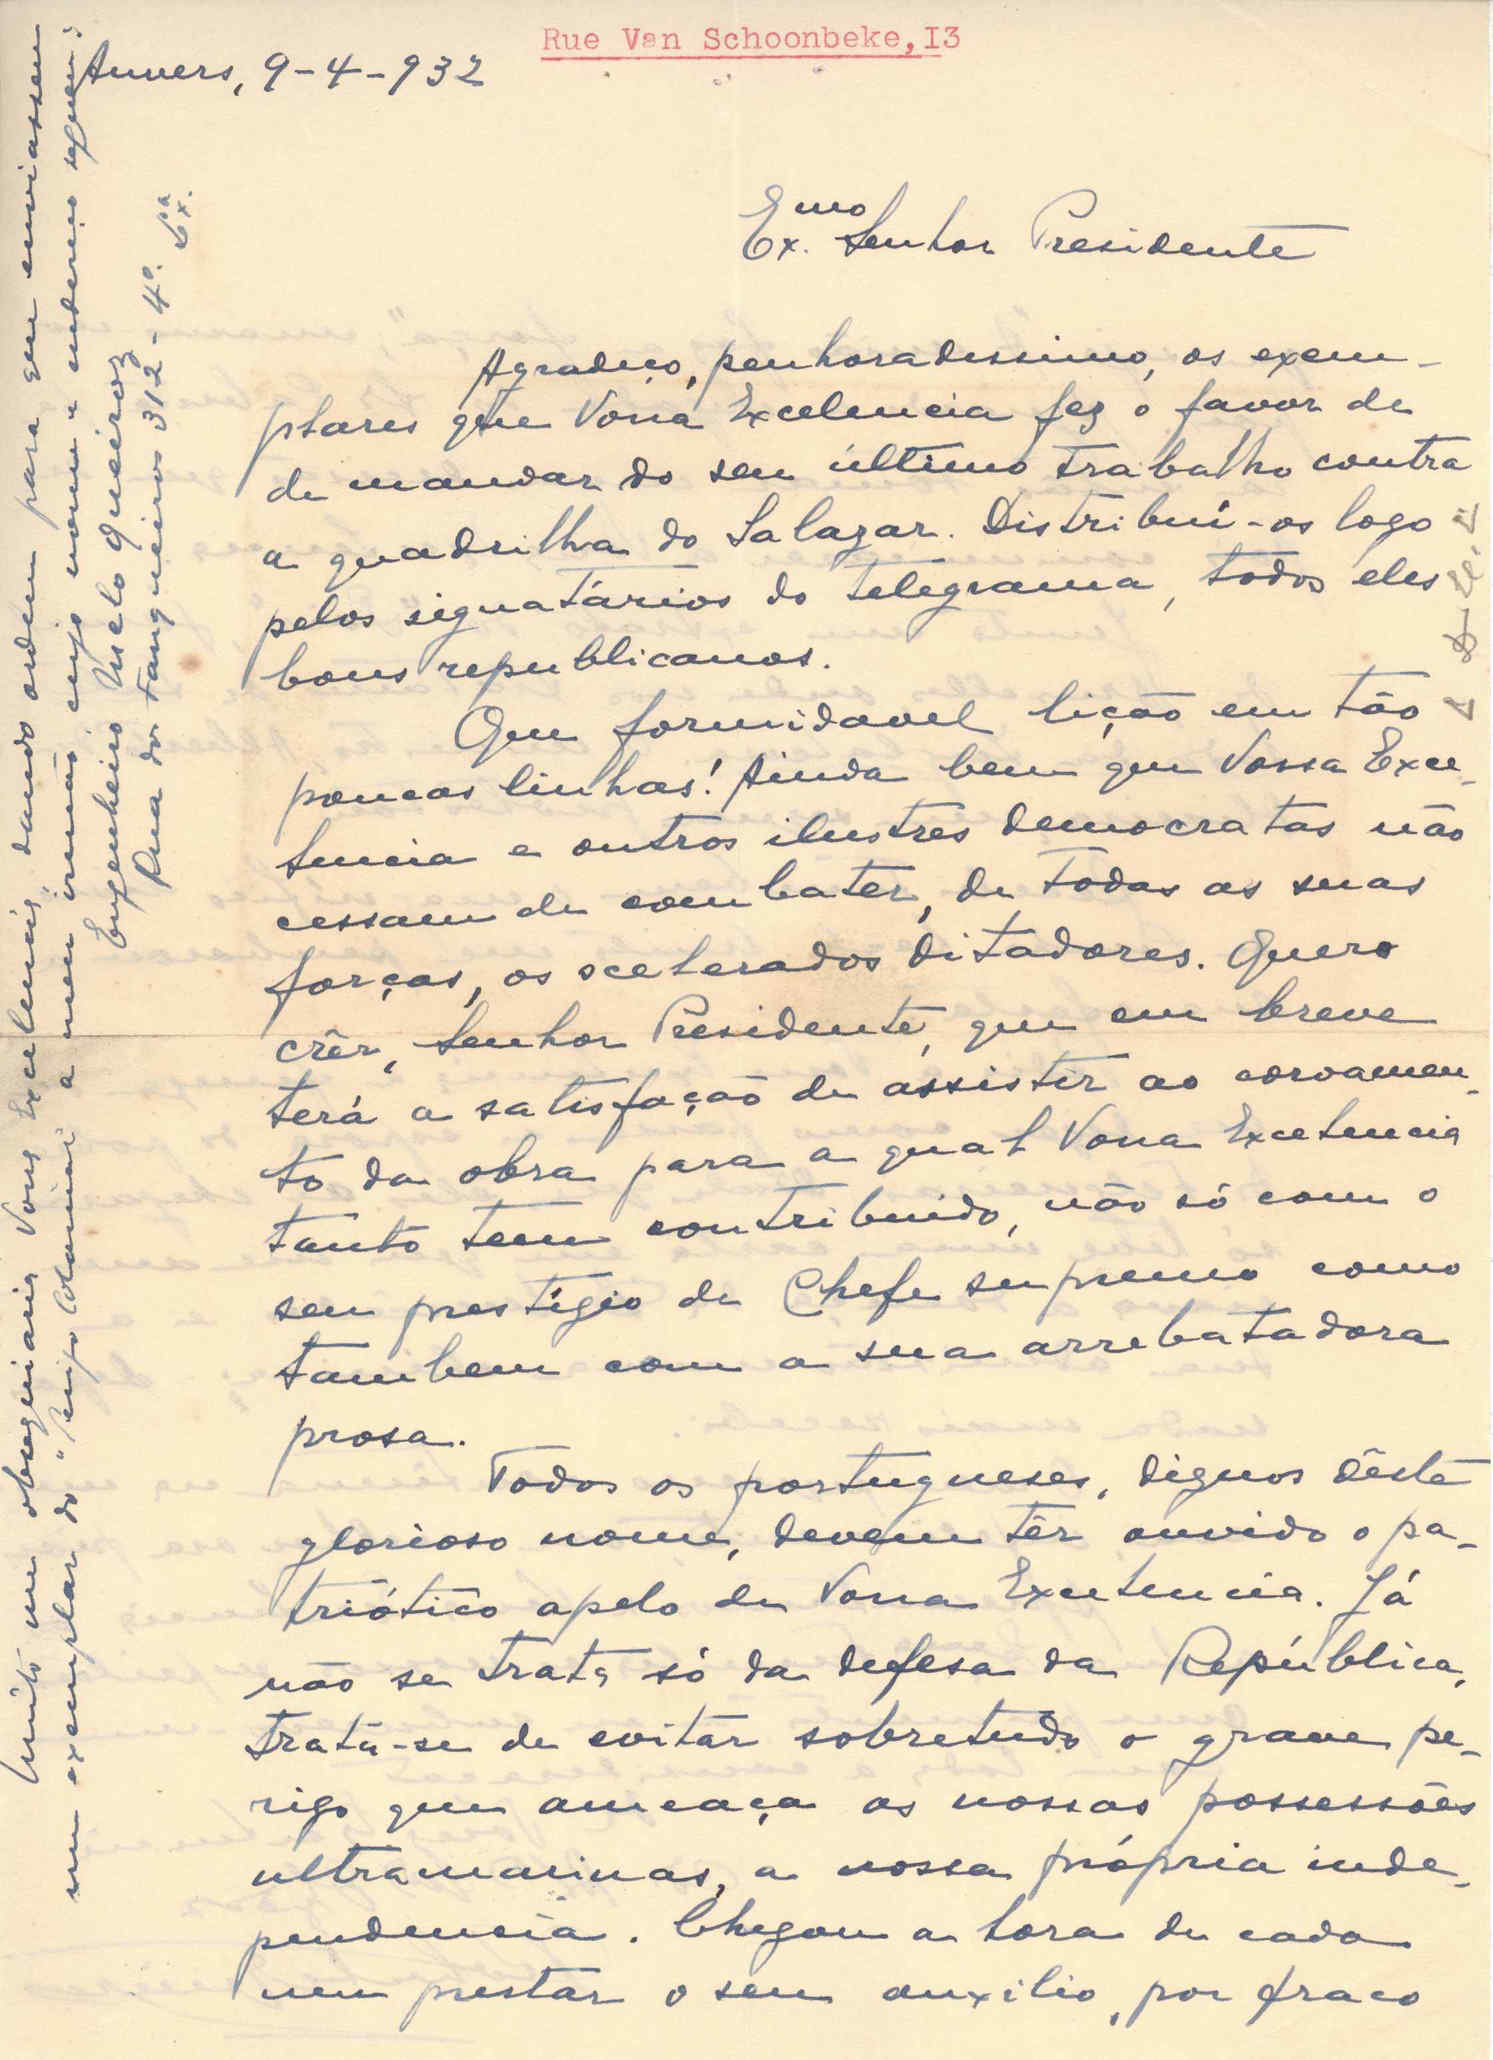 Rue Van Schoonbeke, I3
Anvers, 9-4-932
Exmo Senhor Presidente
Agradeço, penhoradissimo, os exem-
plares que Vossa Excelencia fez o favor de
de mandar do seu último trabalho contra
a quadrilha do Salazar. Distribuí-os logo
pelos signatários do telegrama, todos eles
bons republicanos.
Que formidavel lição em tão
poucas linhas! Ainda bem que Vossa Exce-
lencia e outros ilustres democratas não
cessam de combater, de todas as suas
forças, os scelerados ditadores. Quero
crêr, Senhor Presidente, que em breve
terá a satisfação de assistir ao coroamen-
to da obra para a qual Vossa Excelencia
tanto tem contribuido, não só com o
seu prestígio de Chefe supremo como
tambem com a sua arrebatadora
prosa.
Todos os portugueses, dignos dêste
glorioso nome, devem têr ouvido o pa-
triótico apelo de Vossa Excelencia. Já
não se trata só da defesa da República,
trata-se de evitar sobretudo o grave pe-
rigo que ameaça as nossas possessões
ultramarinas, a nossa própria inde-
pendencia. Chegou a hora de cada
um prestar o seu auxilio, por fraco
Muito me obsequiaria Vossa Excelencia dando ordem para que enviassem
um exemplar do a meu irmão cujo nome e endereço seguem:
Engenheiro Melo Queiroz
Rua dos Fanqueiros 312 - 4º. Ex.